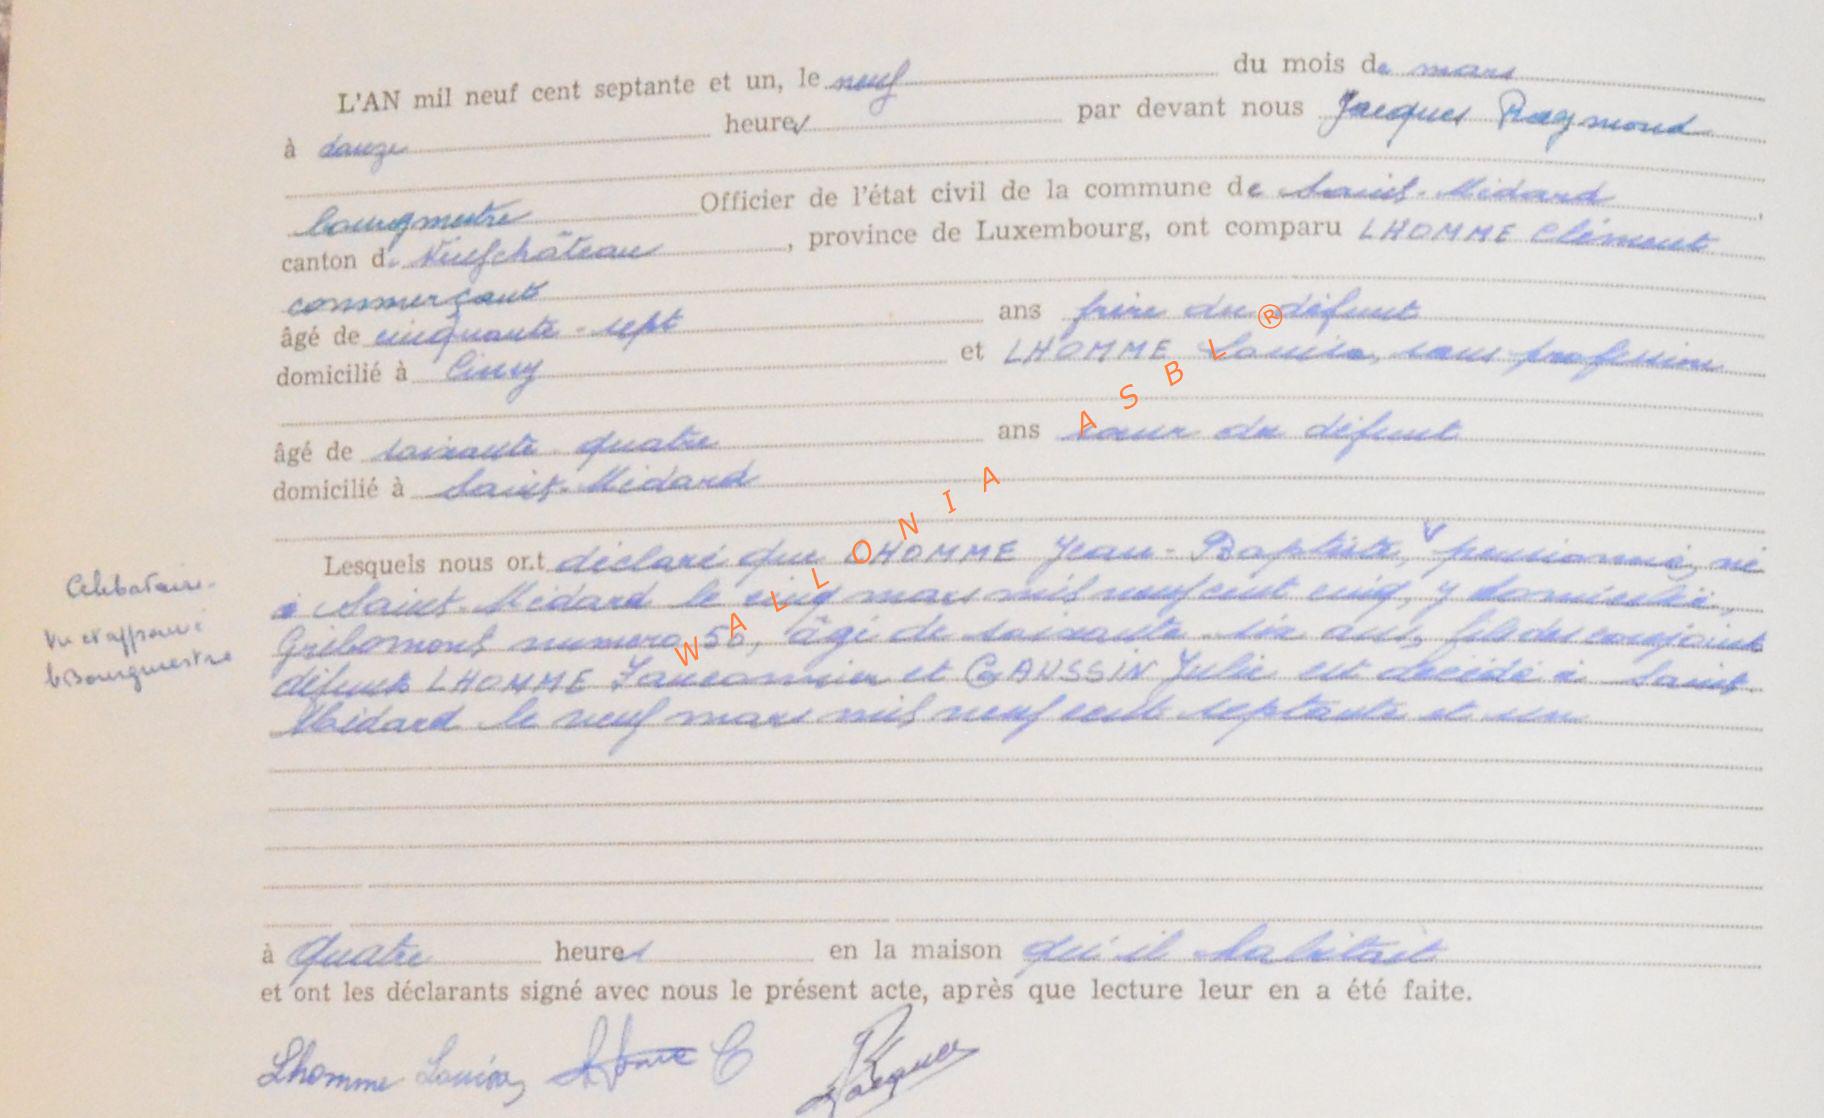 L'AN mil neuf cent septante et un, le neuf du mois de mars
à douze heures par devant nous Jacques Raymond
bourgmestre Officier de l'état civil de la commune de Saint-Médard,
canton de Neufchâteau, province de Luxembourg, ont comparu LHOMME Clément
commerçant
âgé de cinquante-sept ans frère du défunt
domicilié à et LHOMME Louisa, sans profession
âgé de soixante-quatre ans sœur du défunt
domicilié à Saint-Médard
Lesquels nous ont déclaré que LHOMME Jean-Baptiste, pensionné, né
à Saint-Médard le cinq mars mil neuf cent cinq, y domicilié,
Gribomont numéro 56, âgé de soixante-six ans, fils des conjoints
défunts LHOMME et GAUSSIN Julie est décédé à Saint-
Médard le neuf mars mil neuf cent septante et un
Célibataire.
Vu et approuvé
le Bourgmestre
à quatre heures en la maison qu'il habitait
et ont les déclarants signé avec nous le présent acte, après que lecture leur en a été faite.
Lhomme Louisa C RJacques
WALLONIA ASBL ®